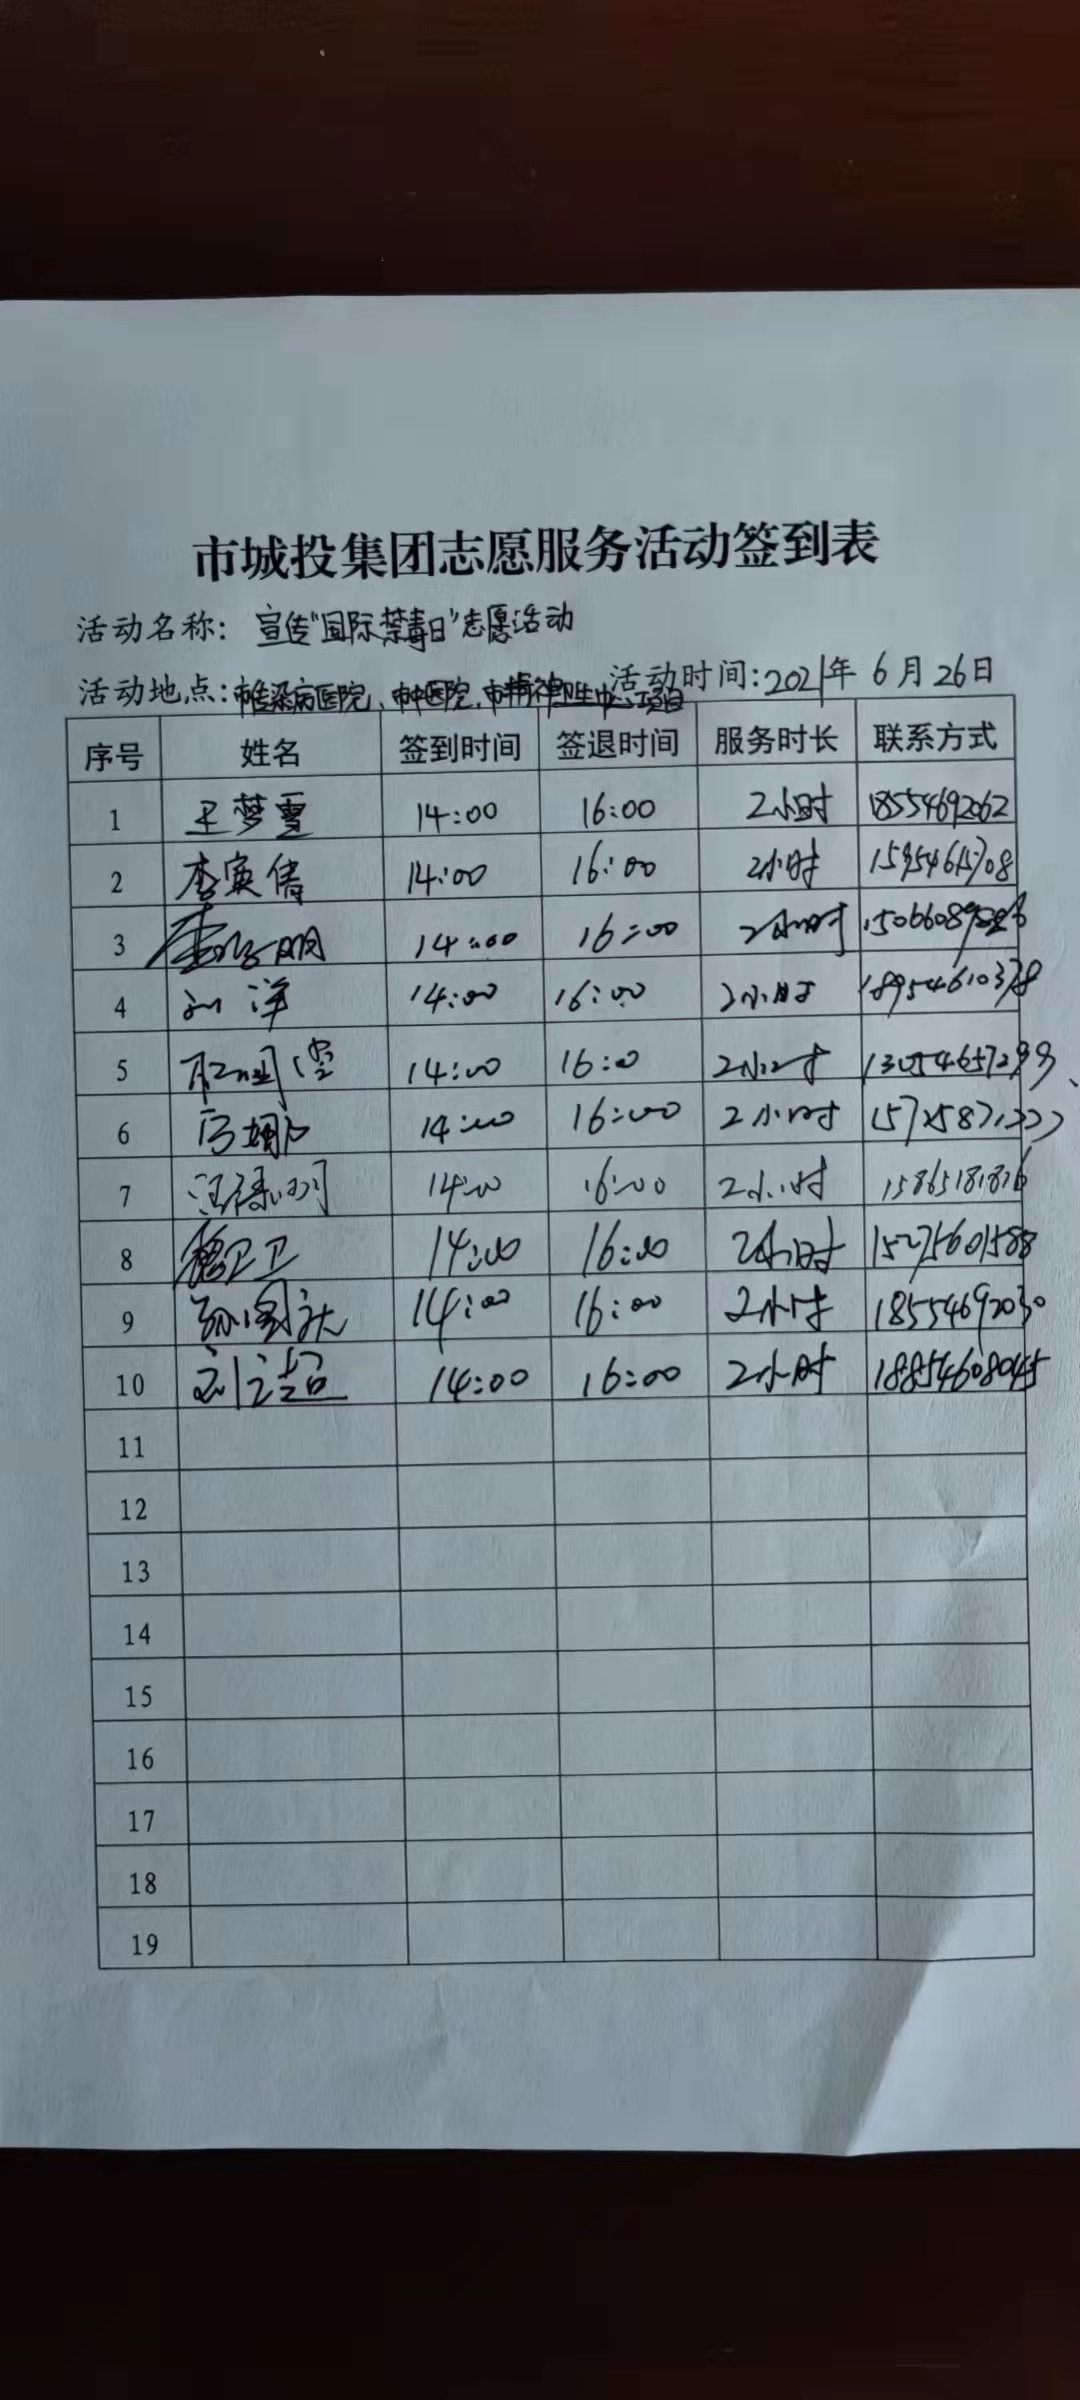 市城投集团志愿服务活动签到表
活动名称：宣传“国际禁毒日”志愿活动
活动地点：市传染病医院、市中医院、市精神卫生中心项目 活动时间：2021年6月26日
序号 姓名 签到时间 签退时间 服务时长 联系方式
1 王梦雪 14:00 16:00 2小时 18554692062
2 李寅倩 14:00 16:00 2小时
3 14:00 16:00 2小时
4 刘洋 14:00 16:00 2小时 18954610378
5 14:00 16:00 2小时 13054657299
6 14:00 16:00 2小时
7 14:00 16:00 2小时
8 穆卫卫 14:00 16:00 2小时 15275601588
9 14:00 16:00 2小时 18554692030
10 刘洁 14:00 16:00 2小时 18854608045
11
12
13
14
15
16
17
18
19